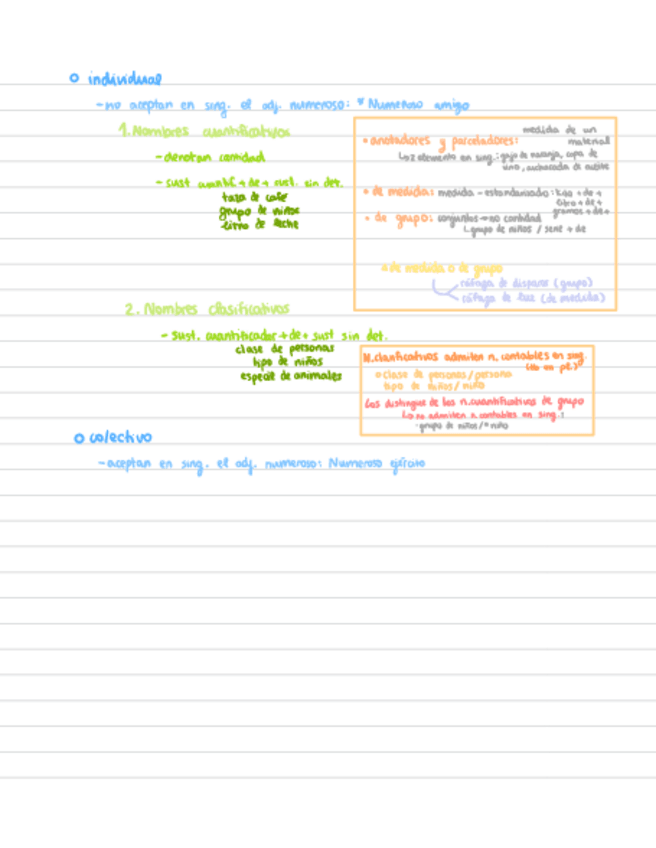 individual
-no aceptan en sing. el adj. numeroso: * Numeroso amigo
1. Nombres cuantificativos
-denotan cantidad
-sust cuantif. + de + sust. sin det.
taza de café
grupo de niños
litro de leche
• acotadores y parceladores: medida de un material
↳ 2 elemento en sing.: gajo de naranja, copa de vino, cucharada de aceite
• de medida: medida - estandarizado: kilo + de +
litro + de +
gramos + de +
• de grupo: conjuntos → no cantidad
↳ grupo de niños / serie + de
• de medida o de grupo
ráfaga de disparos (grupo)
ráfaga de luz (de medida)
2. Nombres clasificativos
- sust. cuantificador + de + sust sin det.
clase de personas
tipo de niños
especie de animales
N. clasificativos admiten n. contables en sing.
(no en pl.)
• clase de personas / persona
tipo de niños / niño
Los distingue de los n. cuantificativos de grupo
↳ no admiten n. contables en sing.:
grupo de niños / * niño
colectivo
-aceptan en sing. el adj. numeroso: Numeroso ejército